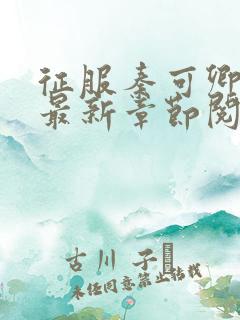 征服秦可卿
最新章节阅
古川 子
未经同意禁止转载